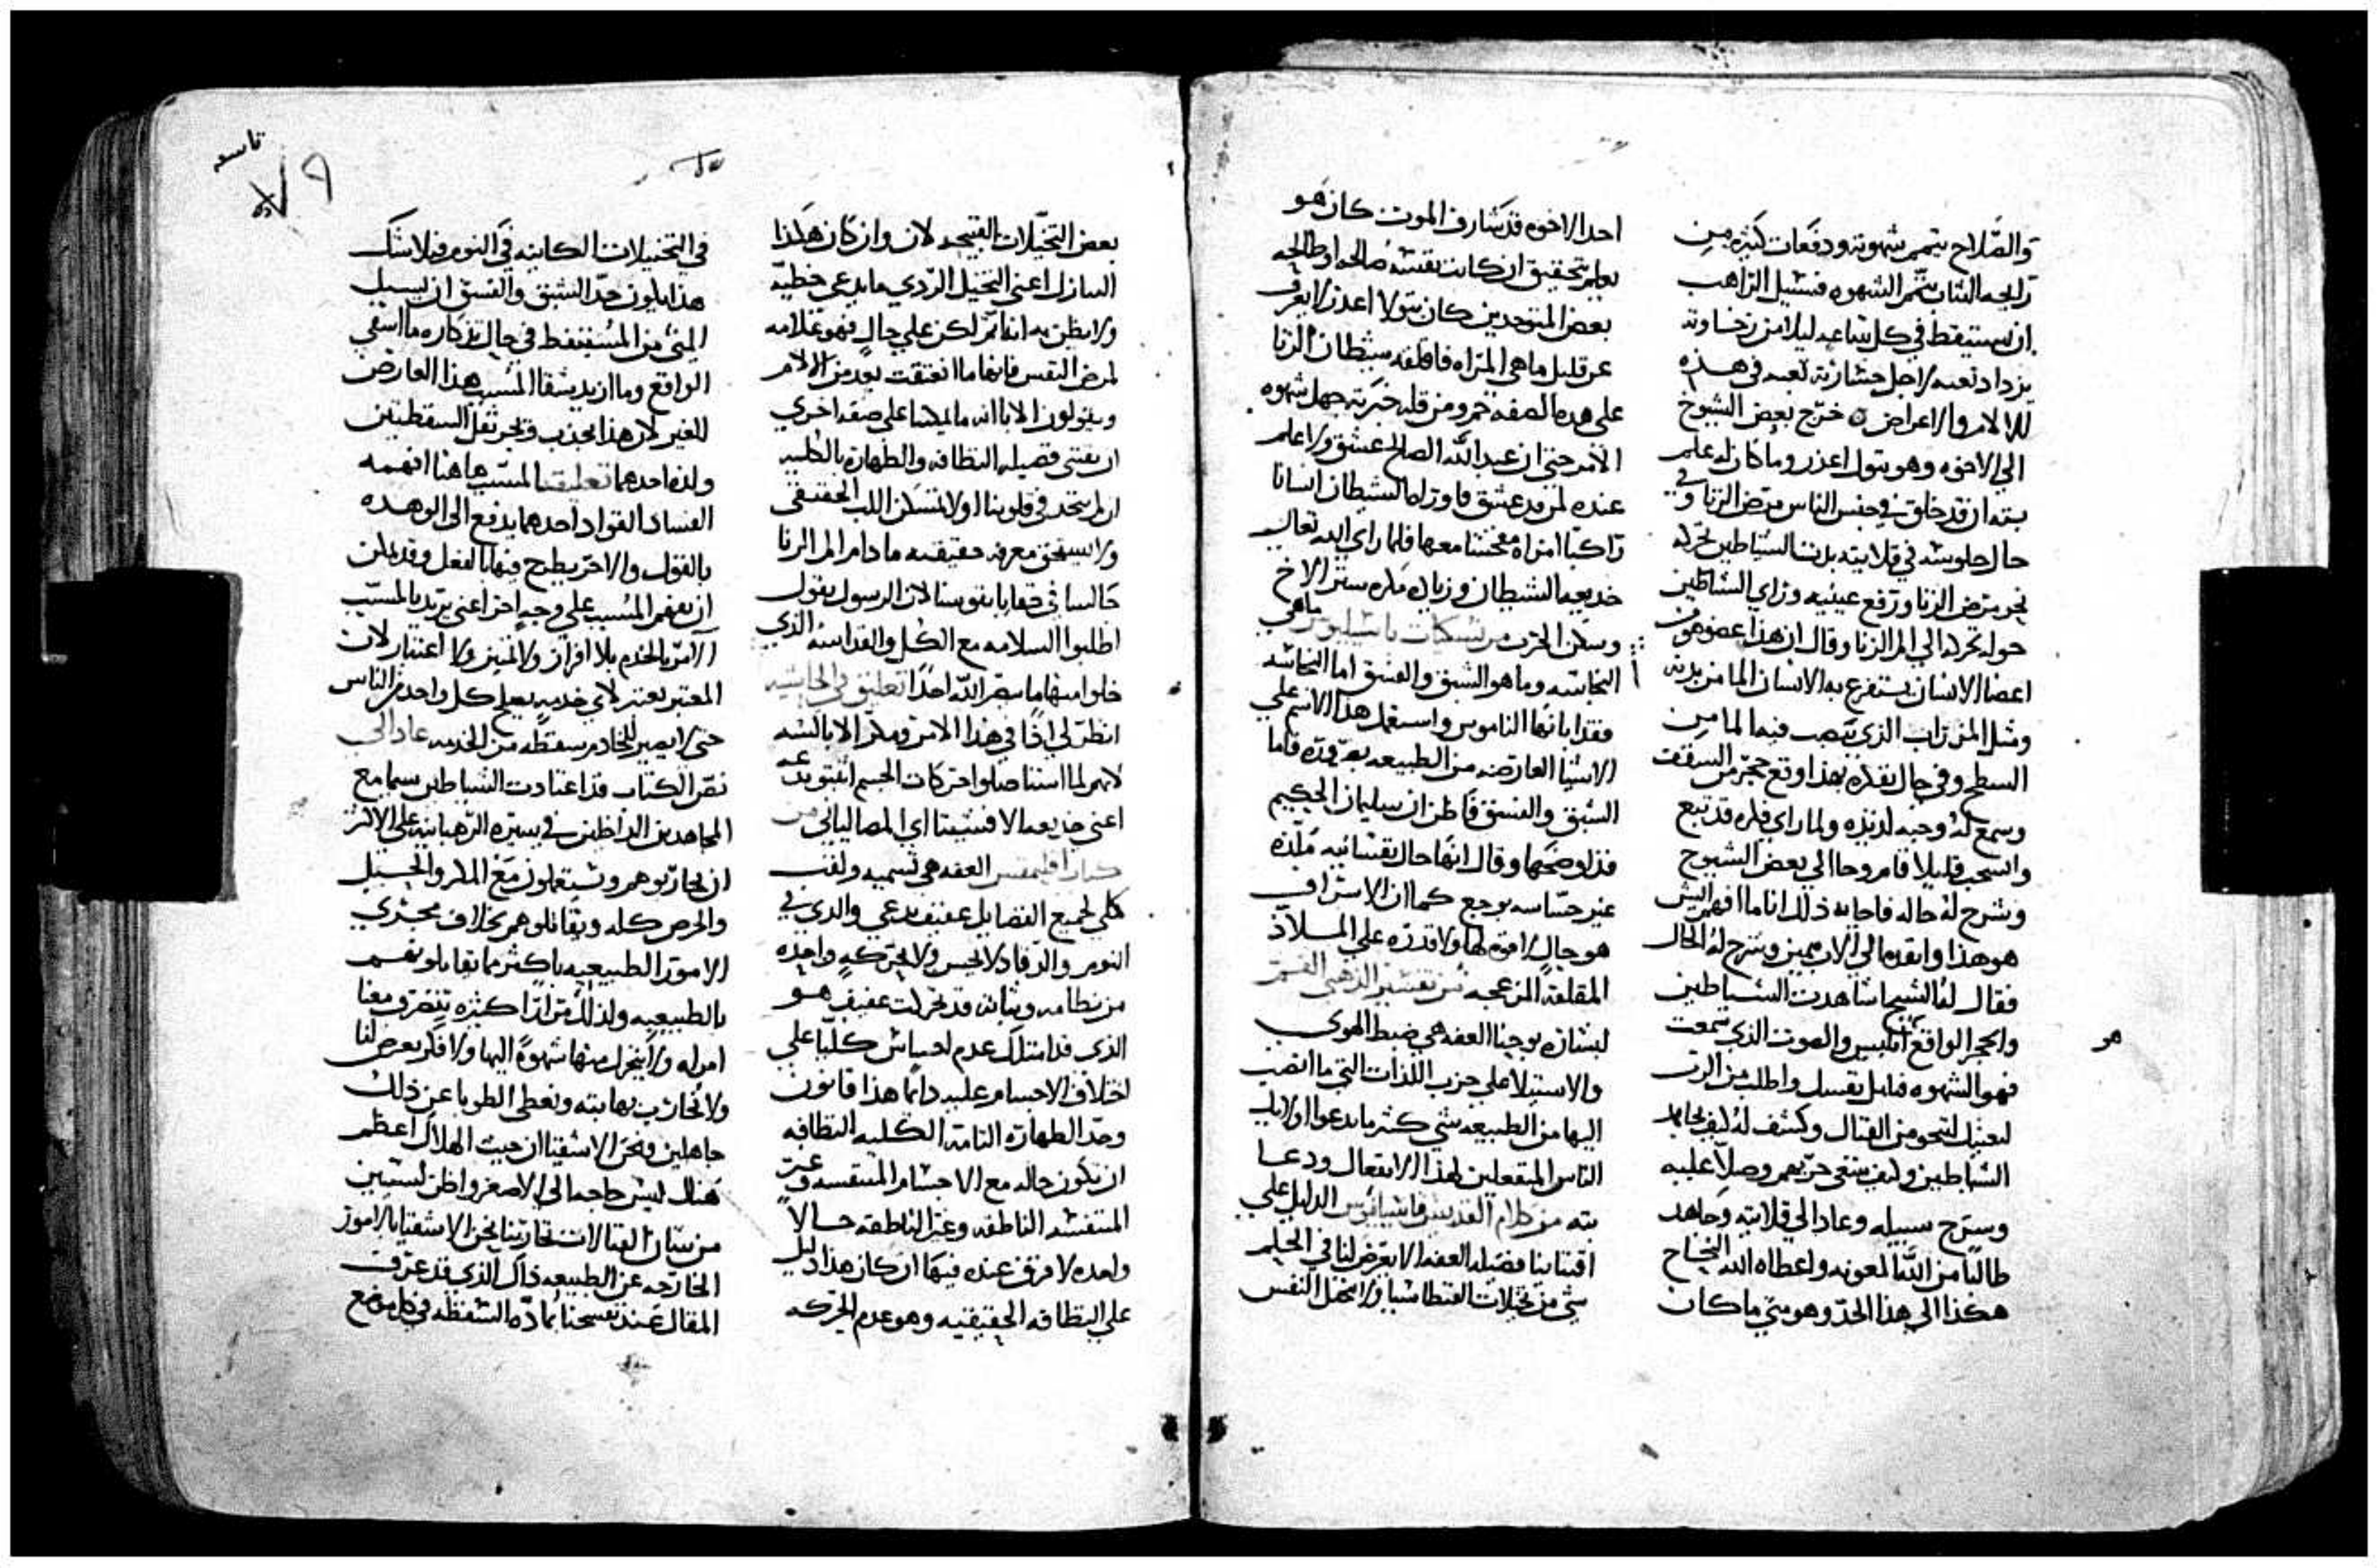 والصلاح يتمم شهوته ودفعات كثيره من
رايحه النتاب تتم الشهوه فسيل الراهب
ان يستيقظ في كل ساعه ليلا من رخاوته
يزداد تعبه لاجل تعبه في هذه
الالام والاعراض خرج بعض الشيوخ
الي الاخوه وهو يقول اعذر وما كان له علم
بته ان قد خلق في جنس الناس مرض الزنا وفي
حال جلوسه في قلايته بدت الشياطين تحركه
نحو مرض الزنا ورفع عينيه وراي الشياطين
حوله تحركه الي الم الزنا وقال ان هذا عضو هو من
اعضا الانسان يستفرغ به الانسان الما من بدنه
ومثل المزراب الذي ينصب فيه الما من
السطح وفي حال تفكره بهذا وقع حجر من السقف
وسمع له وجبه لذيذه ولما راي فكره قد تتبع
وانسحب قليلا قام وجا الي بعض الشيوخ
وشرح له حاله فاجابه ذلك انا ما افهم ايش
هو هذا وانفده الي الاب بيمين وشرح له الحال
فقال له الشيخ ما شاهدت الشياطين
والحجر الواقع ابليس والصوت الذي سمعت
هو
فهو الشهوه فتامل نفسك واطلب من الرب
لعينك لتنجو من القتال وكشف له كيف يجاهد
الشياطين وكيف ينبغي حربهم وصلا عليه
وسرح سبيله وعاد الي قلايته وجاهد
طالبا من الله المعونه واعطاه الله النجاح
هكذا الي هذا الحد وهو متي ما كان
احد الاخوه قد شارف الموت كان هو
يعلم بتحقيق ان كانت نفسه صالحه او طالحه
بعض المتوحدين كان بتولا اعذر لا يعرف
عن قليل ما هي المراه فاقلقه شيطان الزنا
علي هذه الصفه خمر ومن قله خبرته جهل شهوه
الامر حتي ان عبد الله الصالح عشق ولا علم
عنده لمن قد عشق فاوراه الشيطان انسانا
راكبا امراه مفحشا معها فلما راي الله تعالي
خديعه الشيطان وزياده مكره ستر الاخ
وسكن الحرب من نسكيات باسيليوس ما هي
النجاسه وما هو الشبق والفسق اما النجاسه
فقد ابانها الناموس واستعمل هذا الاسم علي
الاشيا العارضه من الطبيعه بضروره فاما
الشبق والفسق فاظن ان سليمان الحكيم
قد اوضحها وقال انها حال نفسانيه ملذه
غير حساسه بوجع كما ان الاستراق
هو حال لا قوه لها ولا قدره علي الملاذ
المقلقه المزعجه من تفسير الذهبي الفم
لبشاره يوحنا العفه هي ضبط الهوي
والاستيلا علي حزب اللذات التي ما انصب
اليها من الطبيعه شي كثير ما يدعوا اولايك
الناس المنفعلين لهذا الانفعال ودعا
بته من كلام القديس قاسيانوس الدليل علي
اقتناينا فضيله العفه الا يعرض لنا في الحلم
شي من تخيلات القنطاسيا ولا تخيل النفس
بعض التخيلات القبيحه لان وان كان هكذا
النازل اعني التخيل الردي ما يدعي خطيه
ولا يظن به انه اثم لكن علي حال فهو علامه
لمرض النفس فانها ما انعتقت بعد من الالام
ويقولون الابا انه ما يمكننا علي صفه اخري
ان نقتني فضيله النظافه والطهاره بالكليه
ان لم يتحد في قلوبنا اولا تمسكن اللب الحقيقي
ولا نستحق معرفه حقيقته ما دام الم الزنا
جالسا في خفايا نفوسنا لان الرسول يقول
اطلبوا السلامه مع الكل والقداسه الذي
خلوا منها ما يبصر الله احدا تعليق في الحاشيه
انظر لي اذا في هذا الامر ومكر الابالسه
لانهم لما استاصلوا حركات الجسم انفتو بدعه
اعني خديعه الافنسيتا اي المصاليانيين من
كتاب اقليمقس العفه هي تسميه ولقب
كلي لجميع الفضايل عفيف يدعي والذي في
النوم والرقاد لا يحس ولا بحركه واحده
من نظامه وثباته قد تحركت عفيف هو
الذي قد امتلك عدم احساس كليا علي
اختلاف الاجسام عليه دايما هذا قانون
وحد الطهاره التامه الكليه النظافه
ان يكون حاله مع الاجسام المتنفسه وغير
المتنفسه الناطقه وغير الناطقه حالا
واحده لا فرق عنده فيها ان كان هذا دليل
علي النظافه الحقيقيه وهو عدم الحركه
تاسعه
٧٩
في التخيلات الكاينه في النوم فبلا شك
هذا يكون حد الشبق والفسق ان يسيل
المني من المستيقظ في حال تذكاره ما اشقي
الواقع وما ازيد شقا المسبب هذا العارض
للغير لان هذا يجذب ويجر ثقل السقطتين
ولذه احدهما تعليق المسبب هاهنا افهمه
الفساد القواد احدهما يدفع الي الوهده
بالقول والاخر يطرح فيها بالفعل وقد يمكن
ان نفهم المسبب علي وجه اخر اعني يريد بالمسبب
الامر بالخدم بلا افراز ولا تميز ولا اعتبار لان
المعتبر يعتبر لاي خدمه يصلح كل واحد من الناس
حتي لا يصير للخادم سقطه من الخدمه عاد الي
نص الكتاب قد اعتادت الشياطين سيما مع
المجاهدين الداخلين في سيره الرهبانيه علي الاكثر
ان يحاربوهم ويستعملون مع المكر والحيل
والحرص كله ويقاتلوهم بخلاف مجري
الامور الطبيعيه باكثر مما يقاتلونهم
بالطبيعيه ولذلك مرارا كثيره يتضرع معنا
امراه ولا يتحرك منها شهوه اليها ولا فكر يعرض لنا
ولا نحارب بها بته ونعطي الطوبا عن ذلك
جاهلين ونحن الاشقيا ان حيث الهلاك اعظم
هناك ليس حاجه الي الاصغر واظن لسببين
من شان القتالات تحاربنا نحن الاشقيا بالامور
الخارجه عن الطبيعه ذاك الذي قد عرفت
المقال عند تفسحنا بماده السقطه في كل موضع